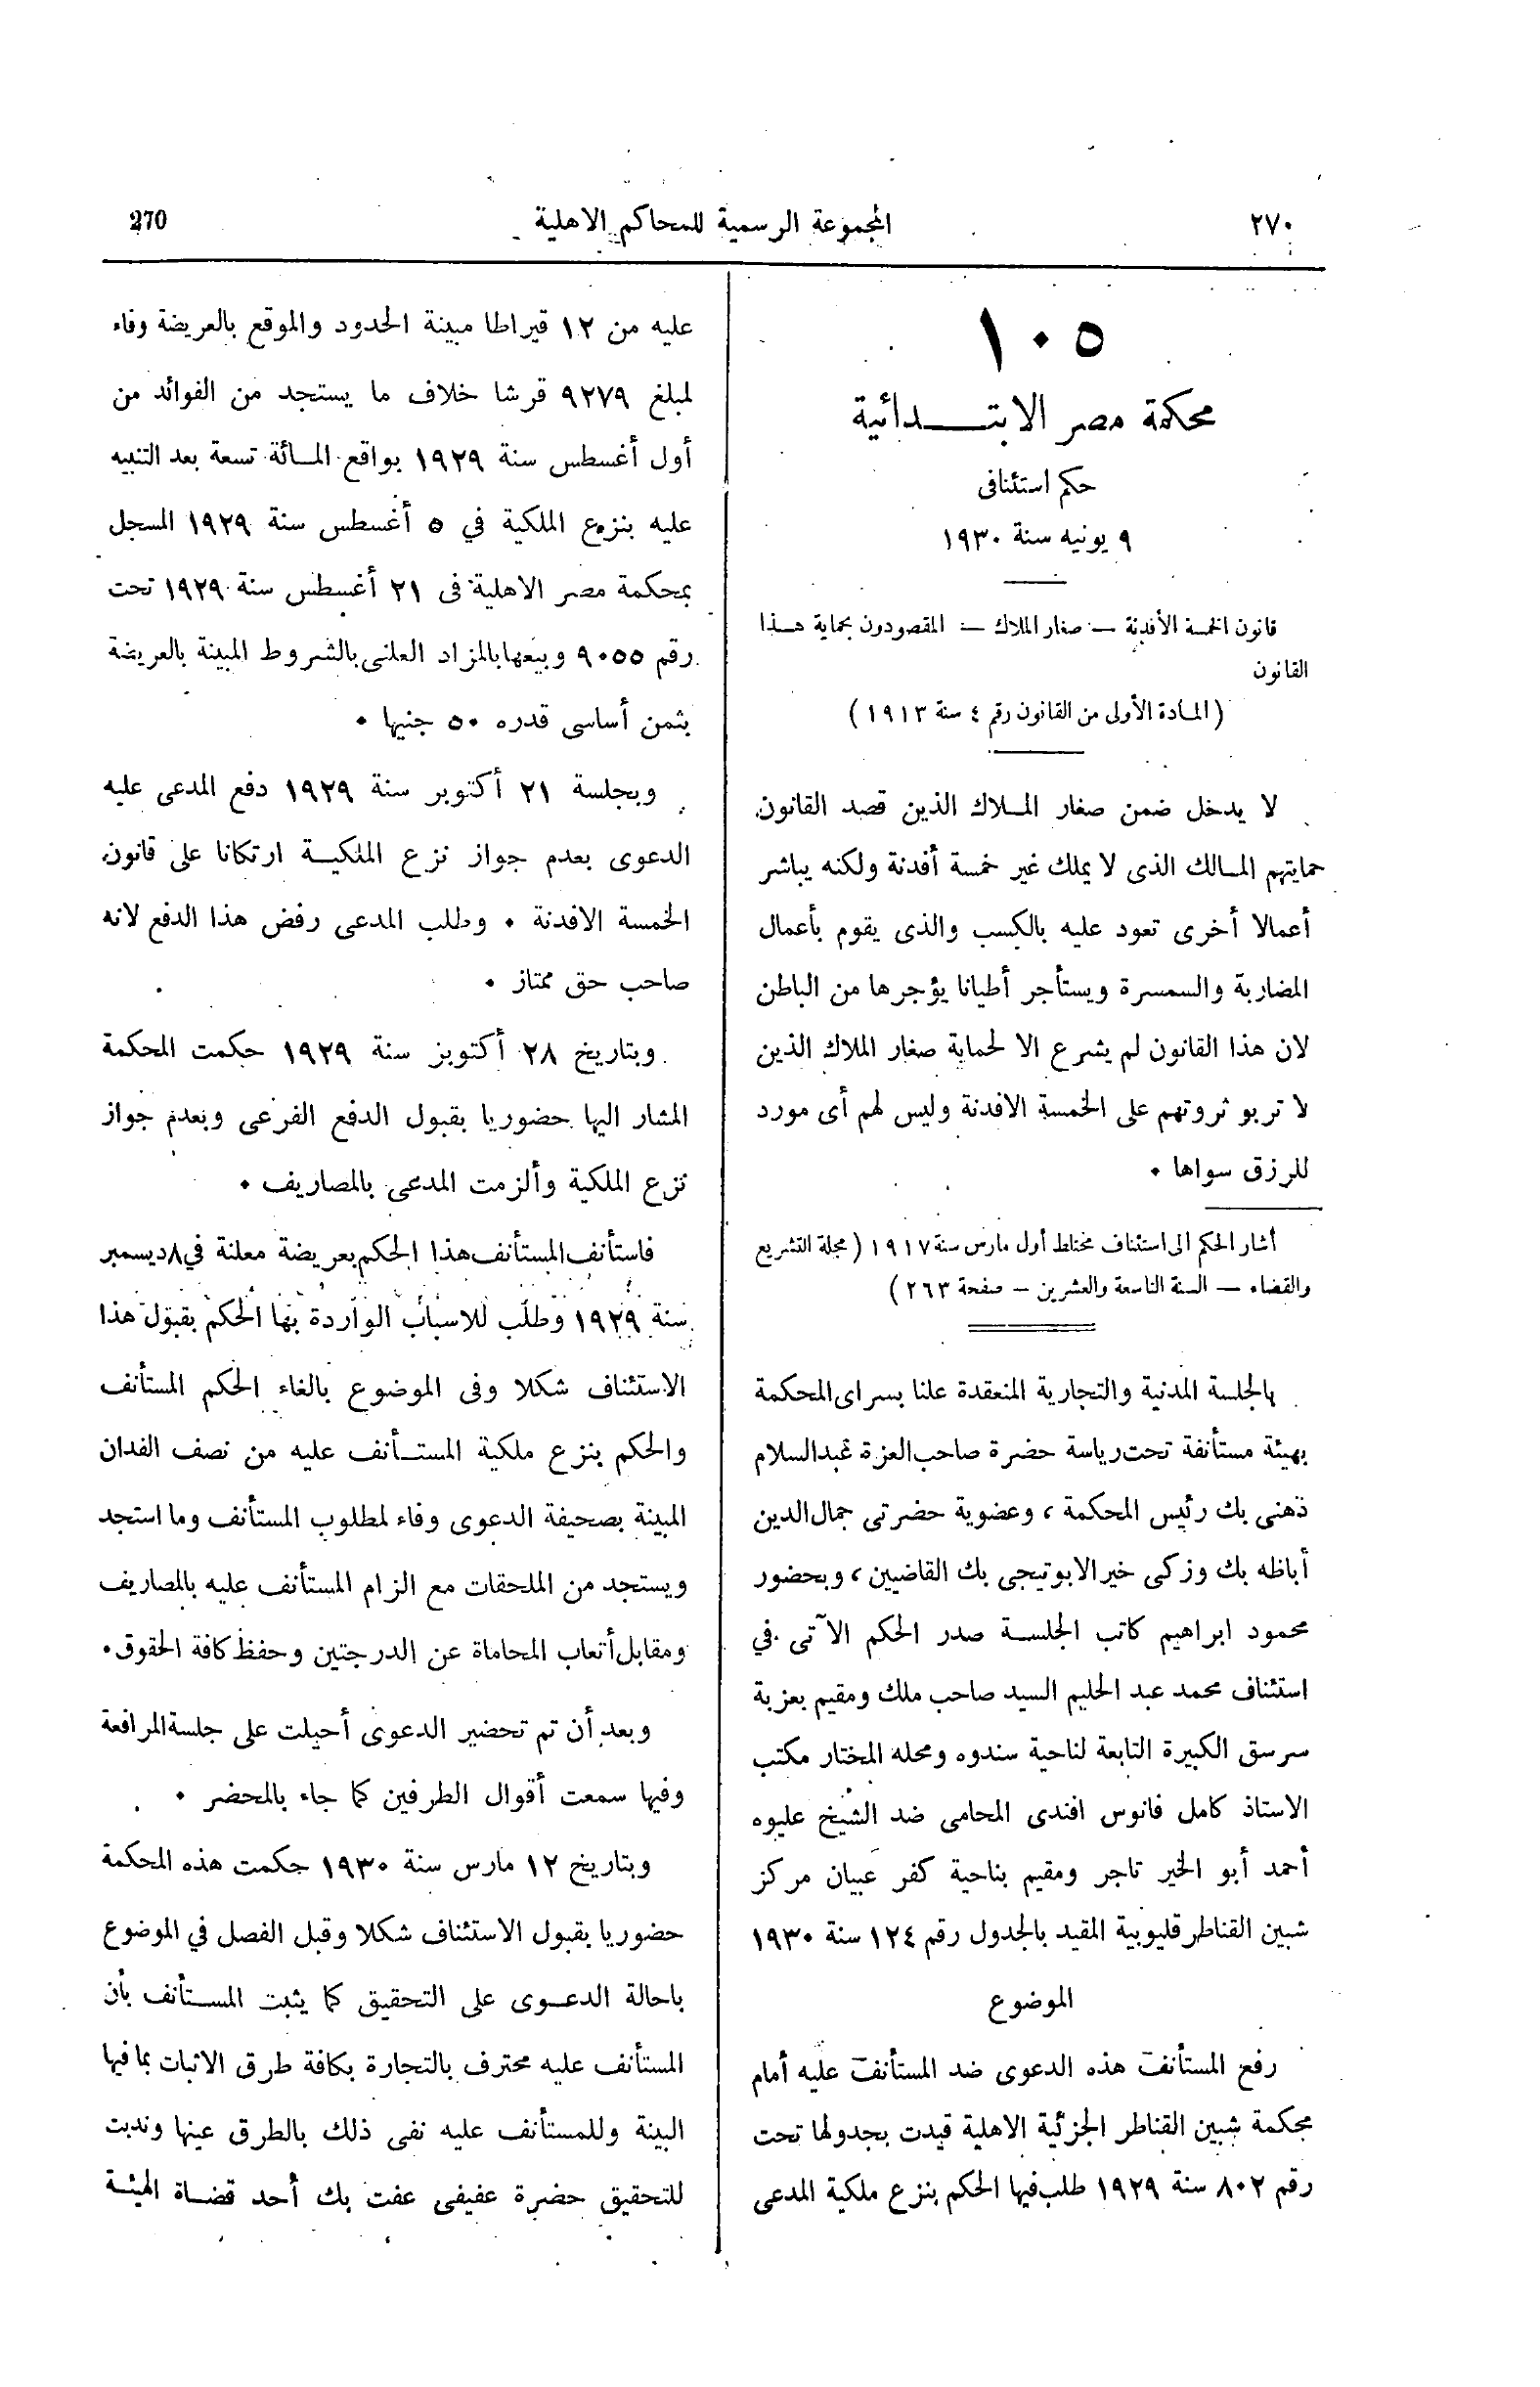 ٢٧٠
المجموعة الرسمية للمحاكم الاهلية
270
١٠٥
محكمة مصر الابتدائية
حكم استئنافى
٩ يونيه سنة ١٩٣٠
قانون الخمسة الأفدنة — صغار الملاك — المقصودون بحماية هذا
القانون
(المادة الأولى من القانون رقم ٤ سنة ١٩١٣)
لا يدخل ضمن صغار الملاك الذين قصد القانون
حمايتهم المالك الذى لا يملك غير خمسة أفدنة ولكنه يباشر
أعمالا أخرى تعود عليه بالكسب والذى يقوم بأعمال
المضاربة والسمسرة ويستأجر أطيانا يؤجرها من الباطن
لان هذا القانون لم يشرع الا لحماية صغار الملاك الذين
لا تربو ثروتهم على الخمسة الافدنة وليس لهم أى مورد
للرزق سواها ٠
أشار الحكم الى استئناف مختلط أول مارس سنة ١٩١٧ (مجلة التشريع
والقضاء — السنة التاسعة والعشرين — صفحة ٢٦٣)
بالجلسة المدنية والتجارية المنعقدة علنا بسراى المحكمة
بهيئة مستأنفة تحت رياسة حضرة صاحب العزة عبد السلام
ذهنى بك رئيس المحكمة ، وعضوية حضرتى جمال الدين
أباظه بك وزكى خير الابوتيجى بك القاضيين ، وبحضور
محمود ابراهيم كاتب الجلسة صدر الحكم الآتى في
استئناف محمد عبد الحليم السيد صاحب ملك ومقيم بعزبة
سرسق الكبيرة التابعة لناحية سندوه ومحله المختار مكتب
الاستاذ كامل فانوس افندى المحامى ضد الشيخ عليوه
أحمد أبو الخير تاجر ومقيم بناحية كفر عبيان مركز
شبين القناطر قليوبية المقيد بالجدول رقم ١٢٤ سنة ١٩٣٠
الموضوع
رفع المستأنف هذه الدعوى ضد المستأنف عليه أمام
محكمة شبين القناطر الجزئية الاهلية قيدت بجدولها تحت
رقم ٨٠٢ سنة ١٩٢٩ طلب فيها الحكم بنزع ملكية المدعى
عليه من ١٢ قيراطا مبينة الحدود والموقع بالعريضة وفاء
لمبلغ ٩٢٧٩ قرشا خلاف ما يستجد من الفوائد من
أول أغسطس سنة ١٩٢٩ بواقع المائة تسعة بعد التنبيه
عليه بنزع الملكية في ٥ أغسطس سنة ١٩٢٩ المسجل
بمحكمة مصر الاهلية فى ٢١ أغسطس سنة ١٩٢٩ تحت
رقم ٩٠٥٥ وبيعها بالمزاد العلنى بالشروط المبينة بالعريضة
بثمن أساسى قدره ٥٠ جنيها ٠
وبجلسة ٢١ أكتوبر سنة ١٩٢٩ دفع المدعى عليه
الدعوى بعدم جواز نزع الملكية ارتكانا على قانون
الخمسة الافدنة ٠ وطلب المدعى رفض هذا الدفع لانه
صاحب حق ممتاز ٠
وبتاريخ ٢٨ أكتوبر سنة ١٩٢٩ حكمت المحكمة
المشار اليها حضوريا بقبول الدفع الفرعى وبعدم جواز
نزع الملكية وألزمت المدعى بالمصاريف ٠
فاستأنف المستأنف هذا الحكم بعريضة معلنة في ٨ ديسمبر
سنة ١٩٢٩ وطلب للاسباب الواردة بها الحكم بقبول هذا
الاستئناف شكلا وفى الموضوع بالغاء الحكم المستأنف
والحكم بنزع ملكية المستأنف عليه من نصف الفدان
المبينة بصحيفة الدعوى وفاء لمطلوب المستأنف وما استجد
ويستجد من الملحقات مع الزام المستأنف عليه بالمصاريف
ومقابل أتعاب المحاماة عن الدرجتين وحفظ كافة الحقوق ٠
وبعد أن تم تحضير الدعوى أحيلت على جلسة المرافعة
وفيها سمعت أقوال الطرفين كما جاء بالمحضر ٠
وبتاريخ ١٢ مارس سنة ١٩٣٠ حكمت هذه المحكمة
حضوريا بقبول الاستئناف شكلا وقبل الفصل في الموضوع
باحالة الدعوى على التحقيق كما يثبت المستأنف بأن
المستأنف عليه محترف بالتجارة بكافة طرق الاثبات بما فيها
البينة وللمستأنف عليه نفى ذلك بالطرق عينها وندبت
للتحقيق حضرة عفيفى عفت بك أحد قضاة الهيئة